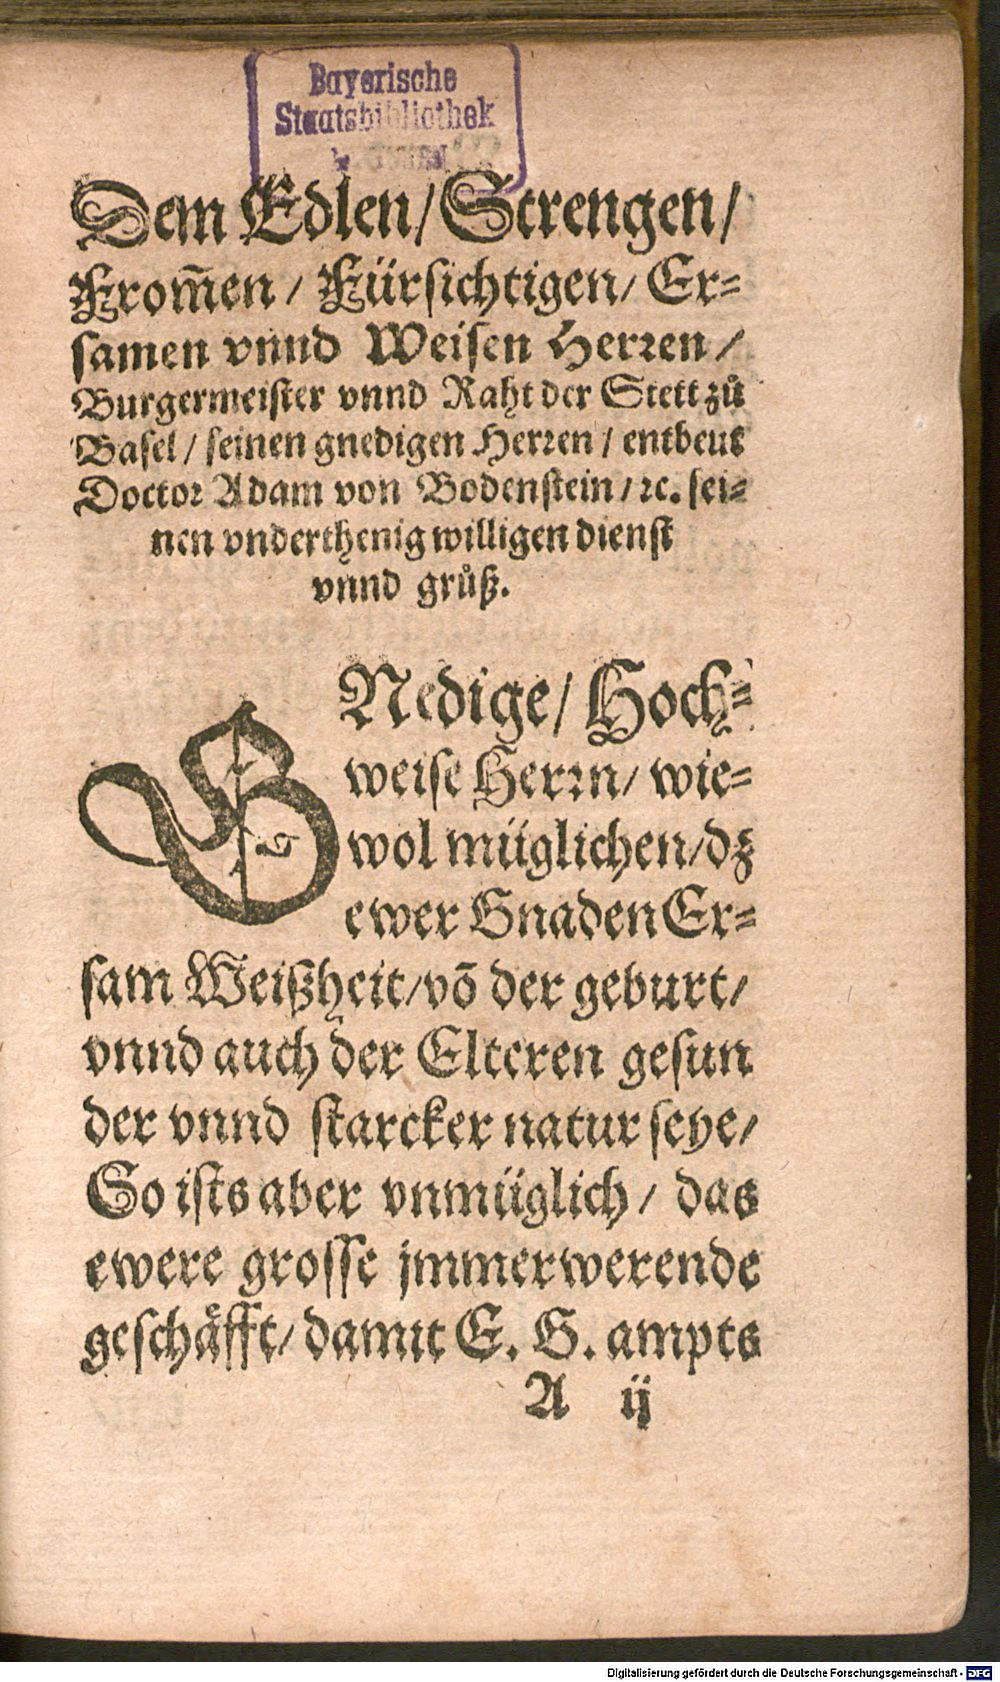 Bayerische
Staatsbibliothek
Dem Edlen/ Strengen/
From̃en/ Fürsichtigen/ Er=
samen vnnd Weisen Herren/
Burgermeister vnnd Raht der Stett zů
Basel/ seinen gnedigen Herren/ entbeut
Doctor Adam von Bodenstein/ ꝛc. sei=
nen vnderthenig willigen dienst
vnnd grůß.
GNedige/ Hoch=
weise Herrn/ wie=
wol müglichen/ dz
ewer Gnaden Er=
sam Weißheit/ võ der geburt/
vnnd auch der Elteren gesun
der vnnd starcker natur seye/
So ists aber vnmüglich/ das
ewere grosse jmmerwerende
geschäfft/ damit E. G. ampts
A ij
Digitalisierung gefördert durch die Deutsche Forschungsgemeinschaft - DFG